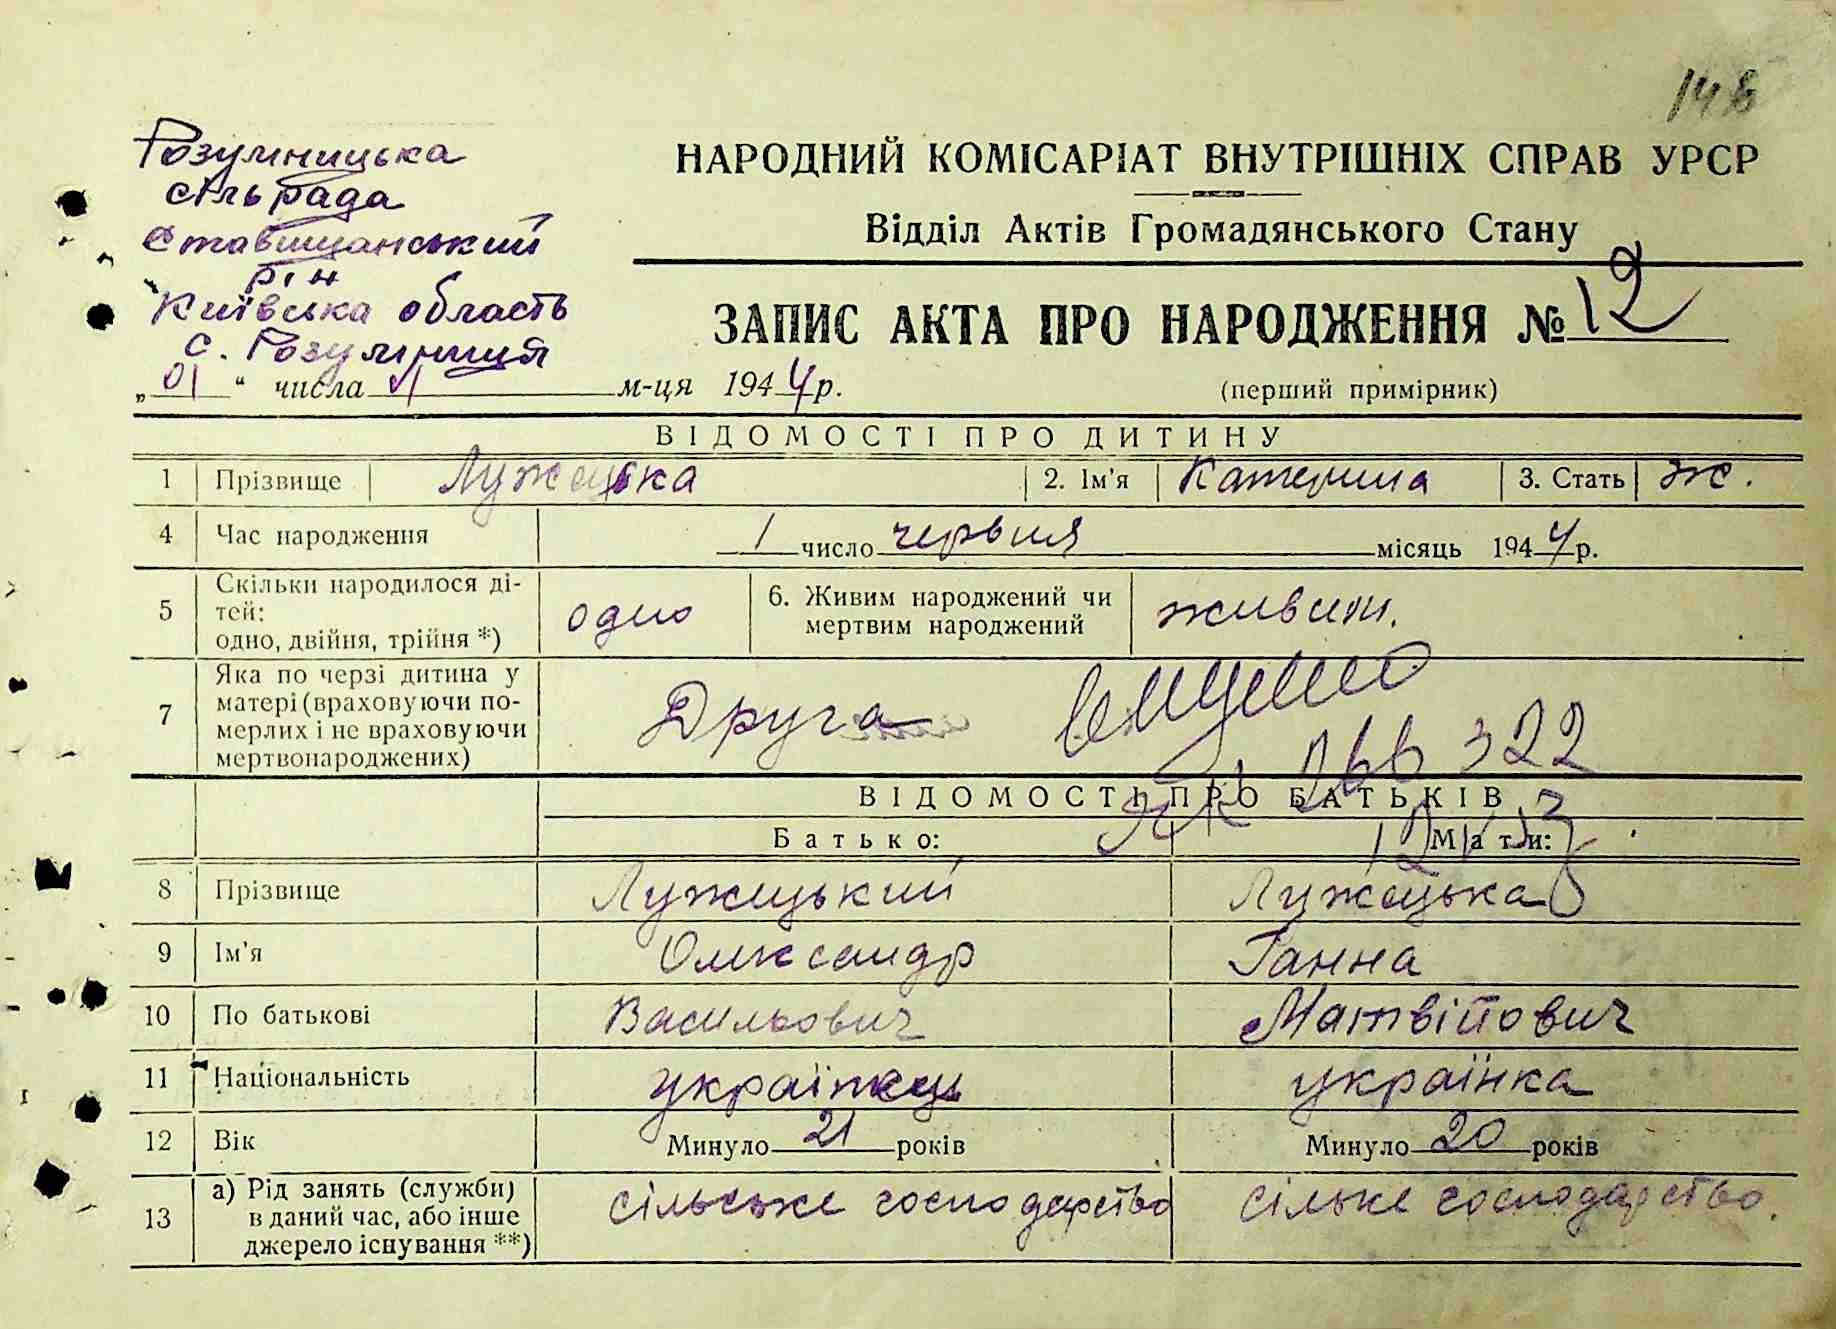 148
Розумницька
сільрада
Ставищанський
р-н
Київська область
с. Розумниця
НАРОДНИЙ КОМІСАРІАТ ВНУТРІШНІХ СПРАВ УРСР
Відділ Актів Громадянського Стану
ЗАПИС АКТА ПРО НАРОДЖЕННЯ № 12
„ 01 “ числа VI м-ця 1944 р.
(перший примірник)
ВІДОМОСТІ ПРО ДИТИНУ
1 Прізвище Лужецька 2. Ім'я Катерина 3. Стать ж.
4 Час народження 1 число червня місяць 1944 р.
5 Скільки народилося ді-
тей:
одно, двійня, трійня *) одно
6. Живим народжений чи
мертвим народжений живим.
7 Яка по черзі дитина у
матері (враховуючи по-
мерлих і не враховуючи
мертвонароджених) Друга
322
ВІДОМОСТІ ПРО БАТЬКІВ
Батько: Мати:
8 Прізвище Лужецький Лужецька
9 Ім'я Олександр Ганна
10 По батькові Васильович Матвійович
11 Національність українець українка
12 Вік Минуло 21 років Минуло 20 років
13 а) Рід занять (служби)
в даний час, або інше
джерело існування **) сільське господарство сільке господарство.